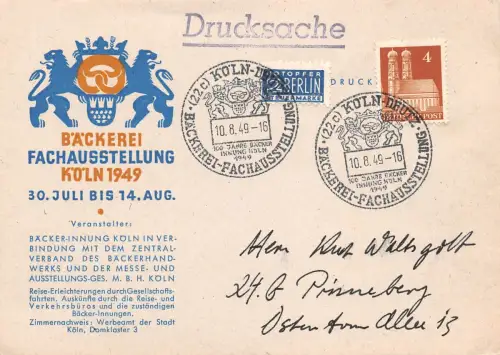 Drucksache
NOTOPFER
2 BERLIN
STEUERMARKE
DRUCK
4
DEUTSCHE POST
(22c) KÖLN-DEUTZ
10.8.49-16
100 JAHRE BÄCKER
INNUNG KÖLN
1949
BÄCKEREI-FACHAUSSTELLUNG
(22c) KÖLN-DEUTZ
10.8.49-16
100 JAHRE BÄCKER
INNUNG KÖLN
1949
BÄCKEREI-FACHAUSSTELLUNG
BÄCKEREI
FACHAUSSTELLUNG
KÖLN 1949
30. JULI BIS 14. AUG.
Veranstalter:
BÄCKER-INNUNG KÖLN IN VER-
BINDUNG MIT DEM ZENTRAL-
VERBAND DES BÄCKERHAND-
WERKS UND DER MESSE- UND
AUSSTELLUNGS-GES. M. B. H. KÖLN
Reise-Erleichterungen durch Gesellschafts-
fahrten. Auskünfte durch die Reise- und
Verkehrsbüros und die zuständigen
Bäcker-Innungen.
Zimmernachweis: Werbeamt der Stadt
Köln, Domkloster 3
Herrn Kurt
24.b Pinneberg